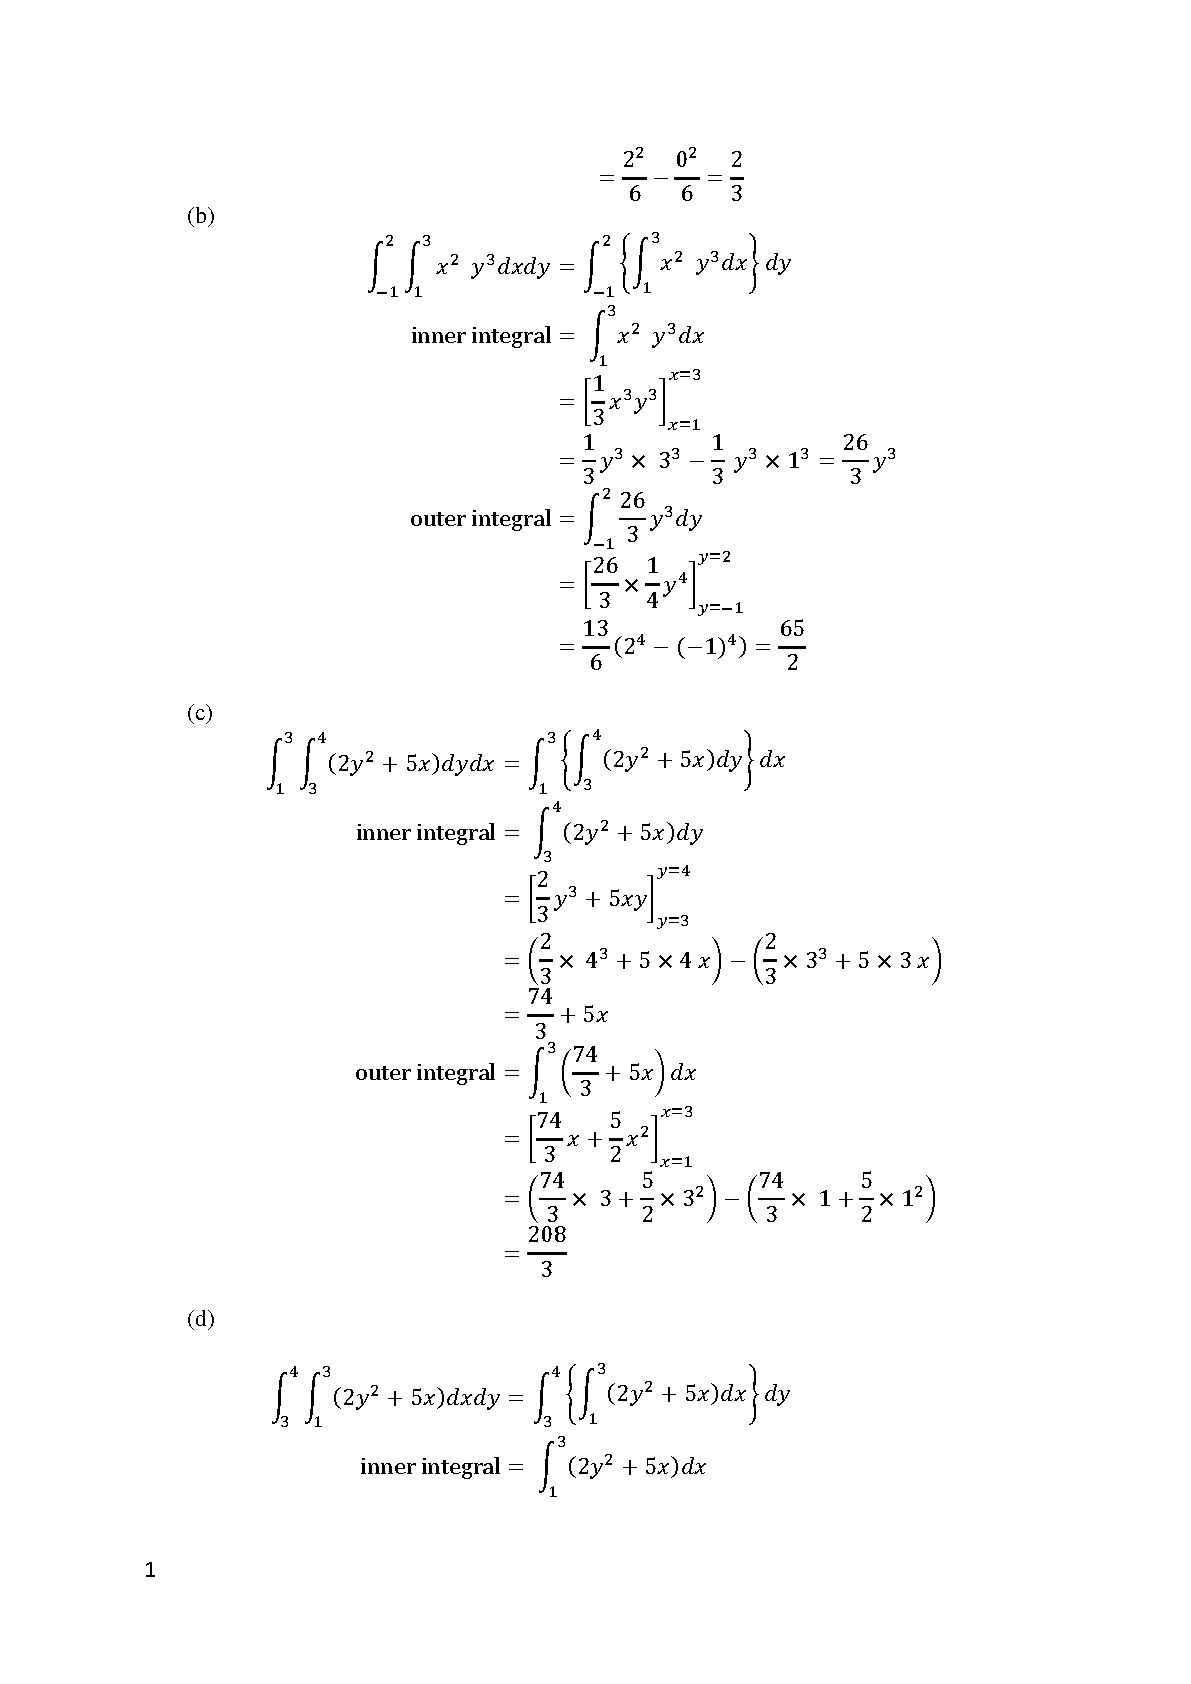 = 2²/6 − 0²/6 = 2/3
(b)
∫₋₁² ∫₁³ x² y³dxdy = ∫₋₁² {∫₁³ x² y³dx} dy
inner integral = ∫₁³ x² y³dx
= [1/3 x³y³]ₓ₌₁ˣ⁼³
= 1/3 y³ × 3³ − 1/3 y³ × 1³ = 26/3 y³
outer integral = ∫₋₁² 26/3 y³dy
= [26/3 × 1/4 y⁴]_{y=−1}^{y=2}
= 13/6 (2⁴ − (−1)⁴) = 65/2
(c)
∫₁³ ∫₃⁴ (2y² + 5x)dydx = ∫₁³ {∫₃⁴ (2y² + 5x)dy} dx
inner integral = ∫₃⁴ (2y² + 5x)dy
= [2/3 y³ + 5xy]_{y=3}^{y=4}
= (2/3 × 4³ + 5 × 4 x) − (2/3 × 3³ + 5 × 3 x)
= 74/3 + 5x
outer integral = ∫₁³ (74/3 + 5x) dx
= [74/3 x + 5/2 x²]_{x=1}^{x=3}
= (74/3 × 3 + 5/2 × 3²) − (74/3 × 1 + 5/2 × 1²)
= 208/3
(d)
∫₃⁴ ∫₁³ (2y² + 5x)dxdy = ∫₃⁴ {∫₁³ (2y² + 5x)dx} dy
inner integral = ∫₁³ (2y² + 5x)dx
1